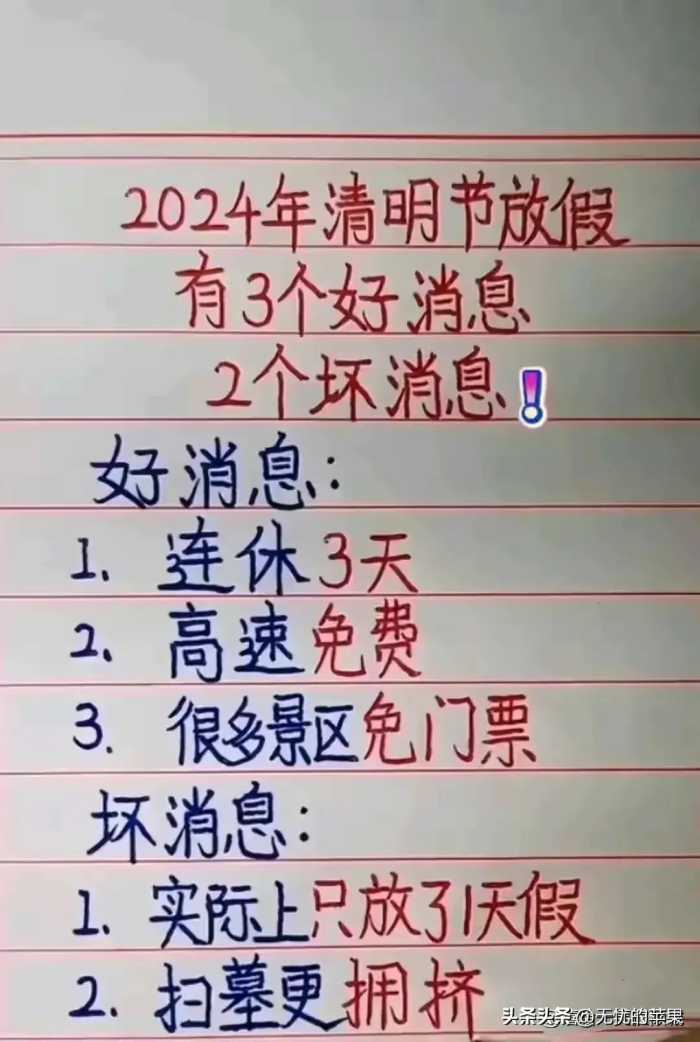 2024年清明节放假
有3个好消息
2个坏消息❗
好消息:
1. 连休3天
2. 高速免费
3. 很多景区免门票
坏消息:
1. 实际上只放了1天假
2. 扫墓更拥挤
头条头条@无忧的苹果